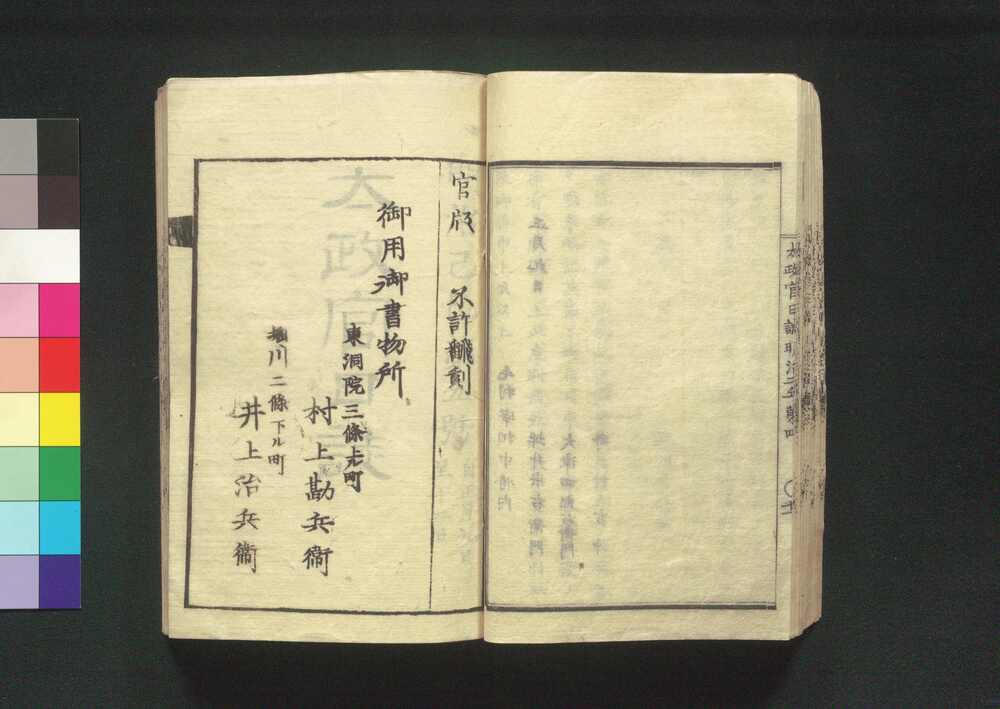 太政官日誌明治二年第四
官版 不許飜刻
御用御書物所
東洞院三條上ル町
村上勘兵衞
堀川二條下ル町
井上治兵衞